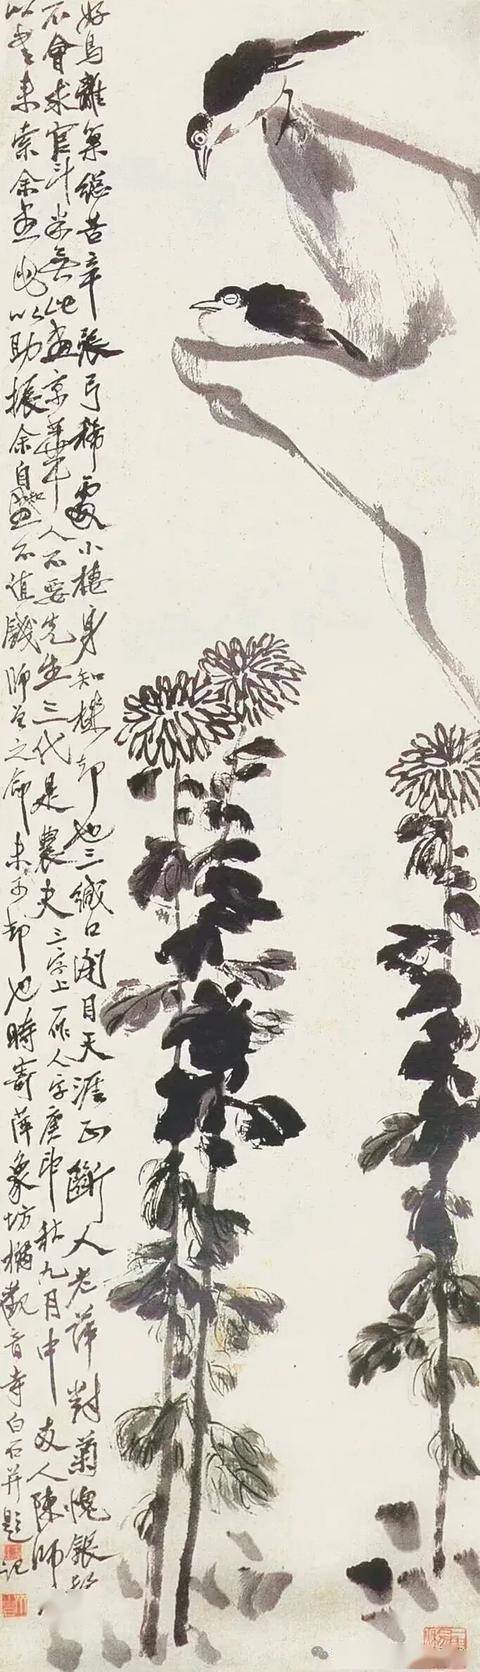 好鳥離巢總苦辛張弓稀處小棲身知機卻也三緘口閉目天涯正斷人老萍對菊愧銀鬚
不會求官斗米無此畫京華人不要先生三代是農夫三字上一作人字庚申秋九月中友人陳師
以書來索余畫以助振余自知畫不值錢師曾之命未可卻也時寄萍象坊橋觀音寺白石并題記